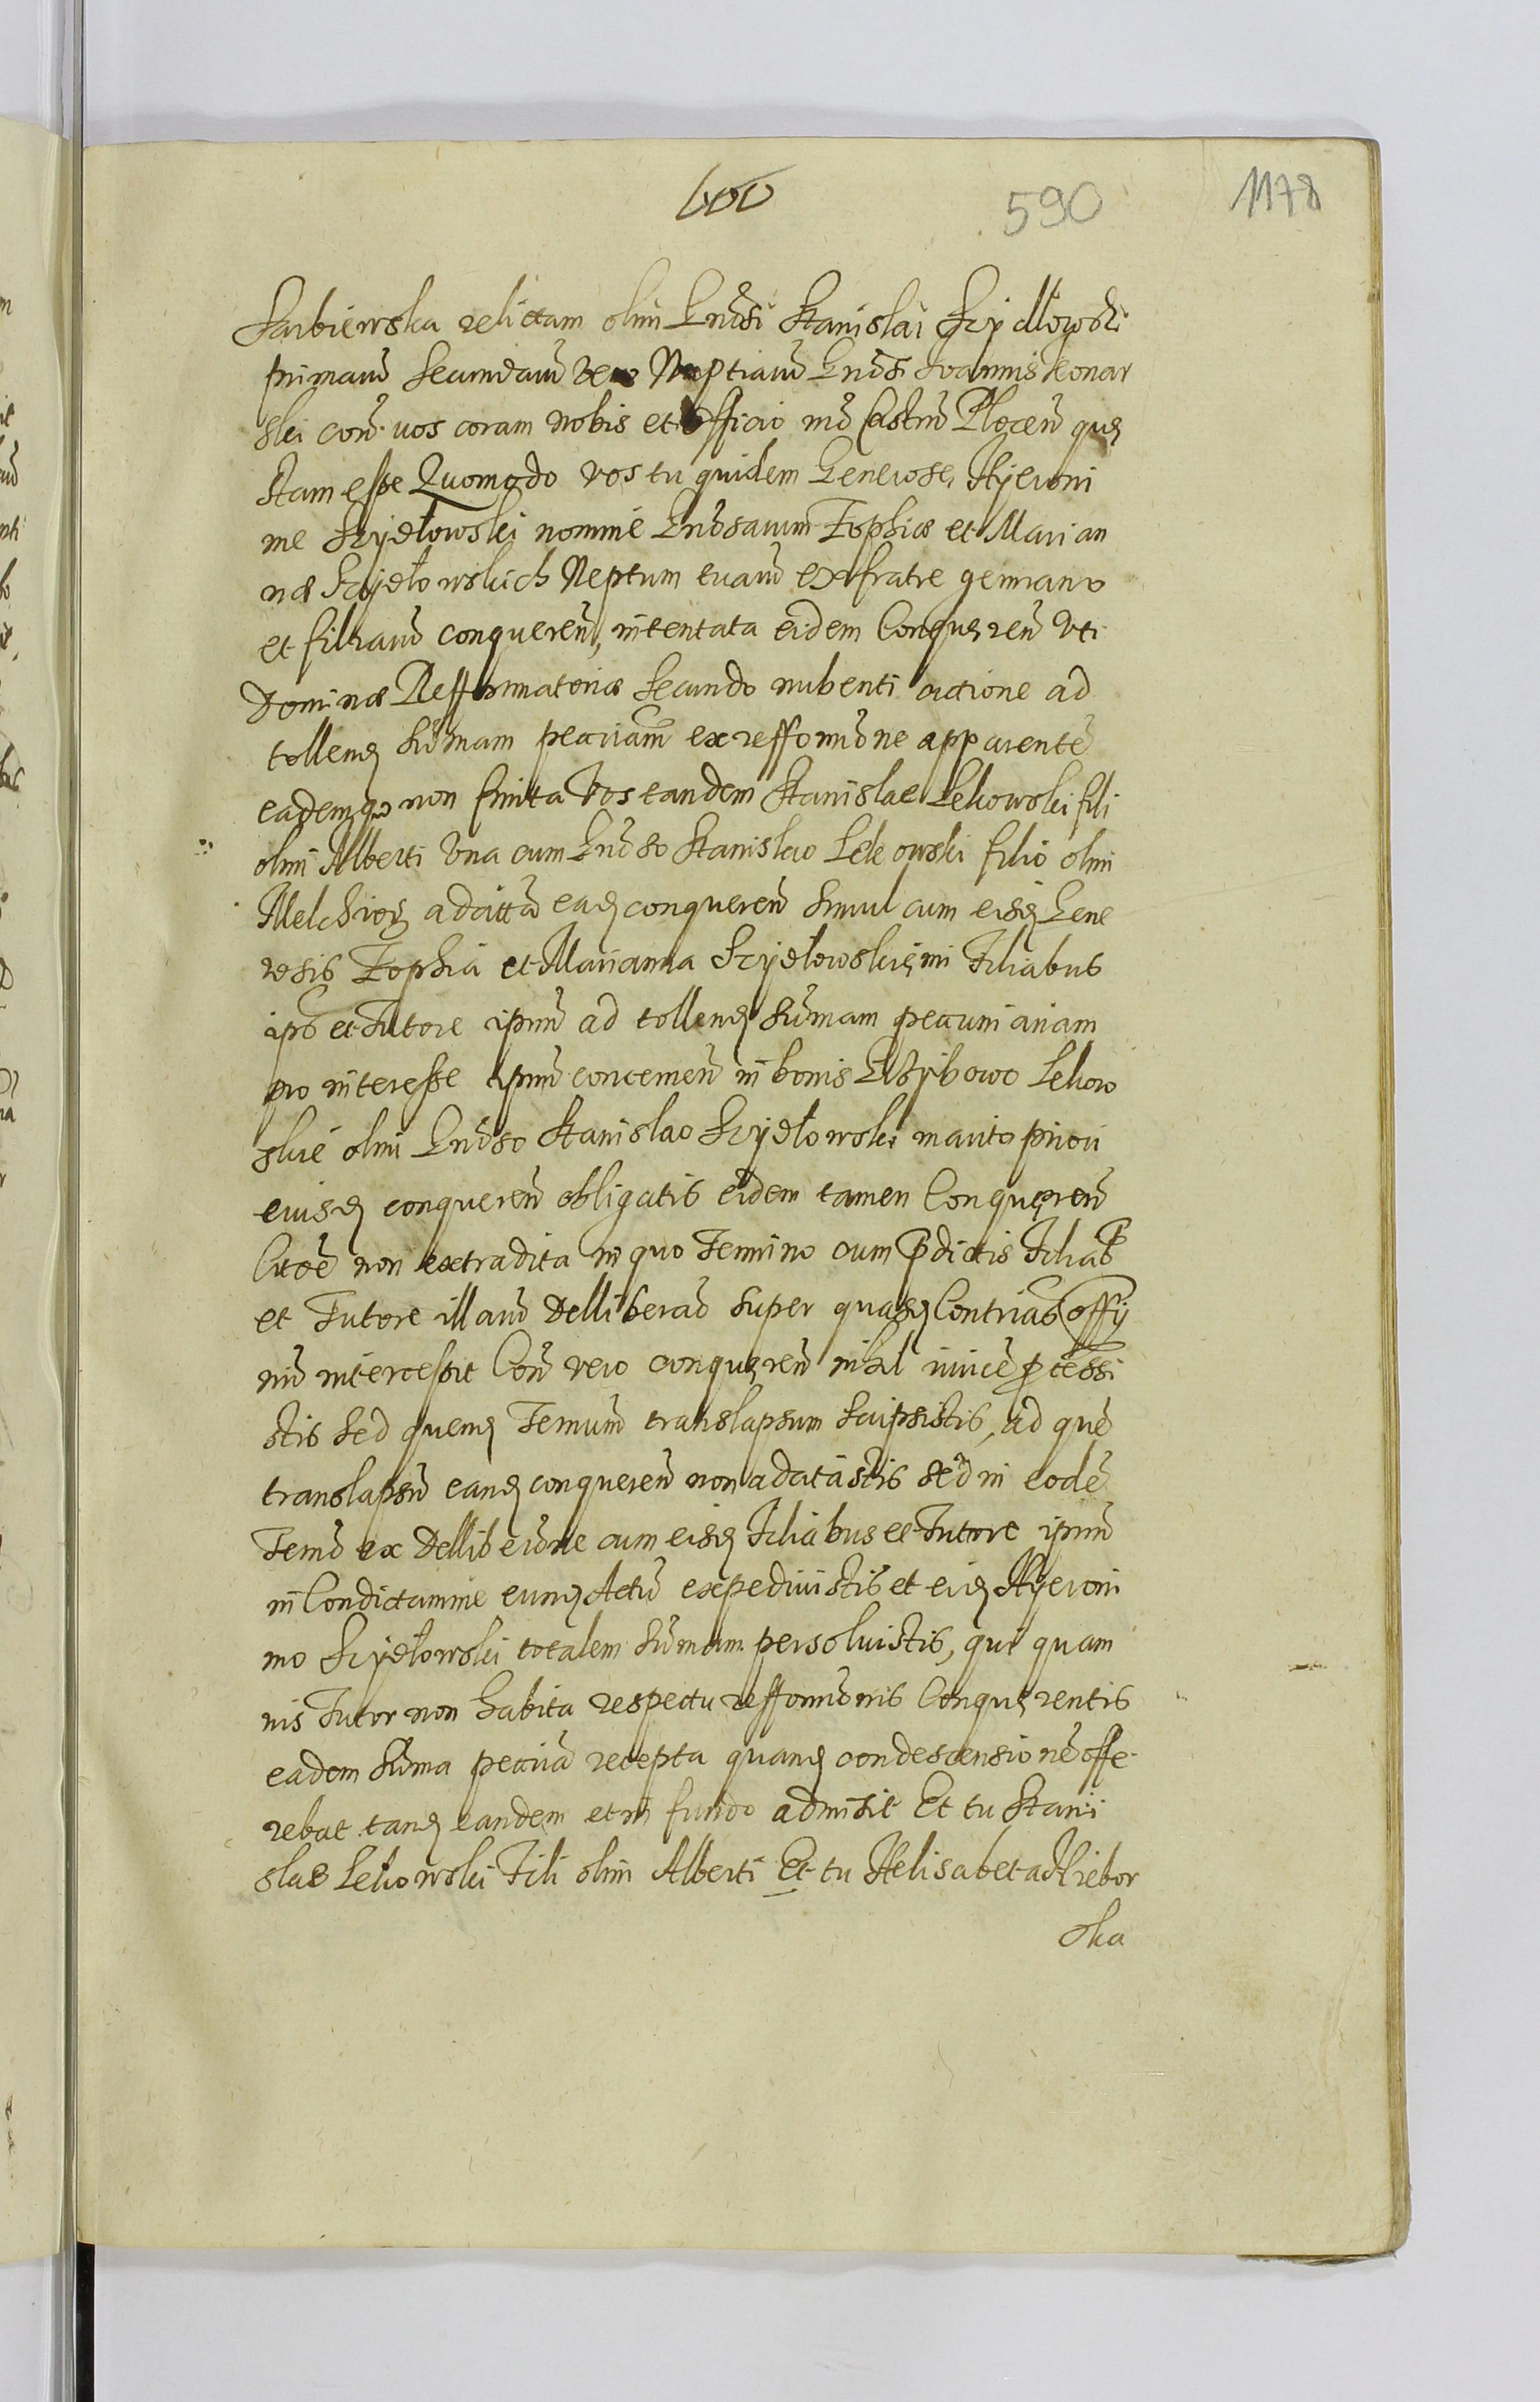 600 590 1178
Sarbiewska relictam olim Gnōsi Stanislai Szydlowski
primarū secundarū vero Nuptiarū Gnōsi Joannis Konar
ski conq̄. vos coram nobis et Officio nrō Castrēn Plocēn que
stam esse Quomodo vos tu quidem Generose Hyeroni
me Szydłowski nomine Gnōsarum Zophiæ et Marian
næ Szydłowskich Neptum tuarū ex fratre germano
et filiarū conquerēn, intentata eidem Conquerēn Vti
Dominæ Refformatoriæ secundo nubenti actione ad
tollenḍ sūmam pecūiam ex refformōne apparentē
eademq̨ non finita Vos tandem Stanislae Lekowski fili
olim Alberti Vna cum Gnōso Stanislao Lekowski filio olim
Melchioris adcittā eaḍ conquerēn simul cum eisḍ Gene
rosis Zophia et Marianna Szydłowskiemi Filiabus
ips̄ et Tutore ipsārū ad tollenḍ sūmam pecuniariam
pro interesse ipsārū concernēn in bonis Grzybowo Lekow
skie olim Gnōso Stanislao Szydłowski marito priori
eiusḍ conquerēn obligatis eidem tamen Conquerēn
Citōē non extradita in quo Termino cum p̄dictis Filiab
et Tutore illarū Delliberaō super quasḍ Contriās offy
nri intercessit Con̄ vero conquerēn nihil iurice p̄cessi
stis sed quenḍ Termnū translapsum scripsistis, ad quē
translapsū eanḍ conquerēn non adcitastis sed in eodē
Termō ex Delliberōne cum eisḍ Filiabus et Tutore ipsārū
in Condictamine eunḍ Actū expedivistis et eiḍ Hyeroni
mo Szydłowski totalem sūmam persolvistis, qui quam
vis Tutor non habita respectu refformōnis Conquerentis
eadem sūma pecūia recepta quanḍ condescensionē offe-
rebat tanḍ eandem et in fundo admisit Et tu Stani
slae Lekowski Fili olim Alberti Et tu Helisabeta Niebor
ska